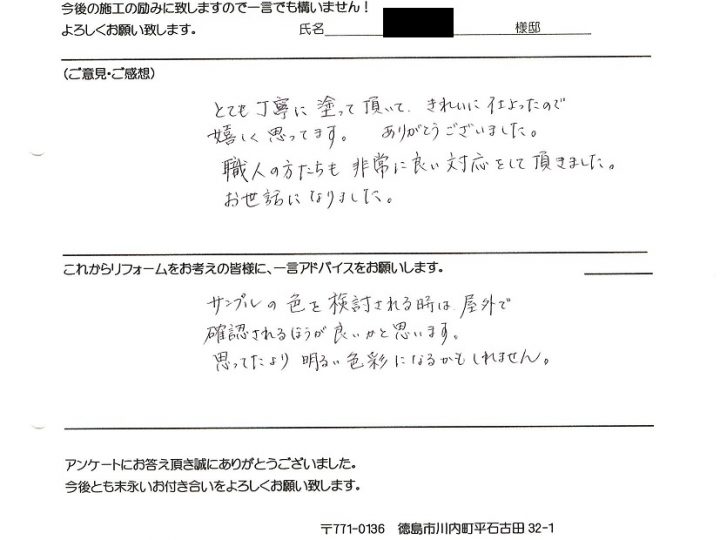 今後の施工の励みに致しますので一言でも構いません！
よろしくお願い致します。
氏名 様邸
(ご意見・ご感想)
とても丁寧に塗って頂いて、きれいに仕上ったので
嬉しく思ってます。 ありがとうございました。
職人の方たちも非常に良い対応をして頂きました。
お世話になりました。
これからリフォームをお考えの皆様に、一言アドバイスをお願いします。
サンプルの色を検討される時は、屋外で
確認されるほうが良いかと思います。
思ってたより明るい色彩になるかもしれません。
アンケートにお答え頂き誠にありがとうございました。
今後とも末永いお付き合いをよろしくお願い致します。
〒771-0136 徳島市川内町平石古田 32-1